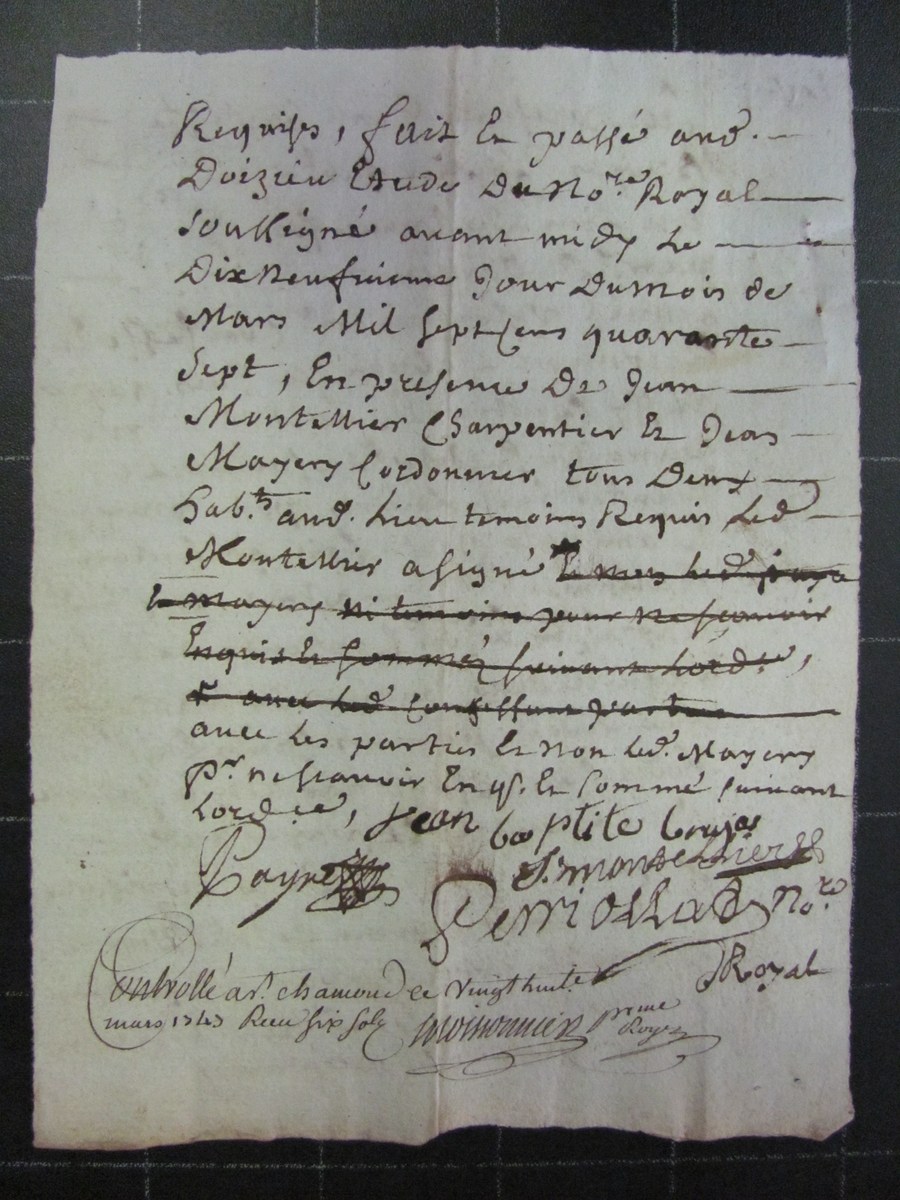 Requises, fait et passé aud.
Doizieu Etude du No.re Royal
Soussigné avant midy Le
Dix neufvieme Jour du mois de
Mars Mil Sept Cens quarante
Sept, En presence De Jean
Montellier Charpentier Et Jean
Mayery Cordonnier tous Deux
Hab.ts aud. Lieu temoins Requis Led.
Montellier a signé Et non Led.
Mayery ni temoins pour ne sçavoir
Enquis Et Sommé Suivant Lord.ce,
avec Led.
avec Les parties Et non Led. Mayery
p.r ne sçavoir Enq.s Et Sommé Suivant
Lord.ce, Jean baptite
Payre J. montellier
Perriolhad No.re
Royal
Controllé a S.t chamond ce Vingt huit
mars 1747 Receu Six Sols